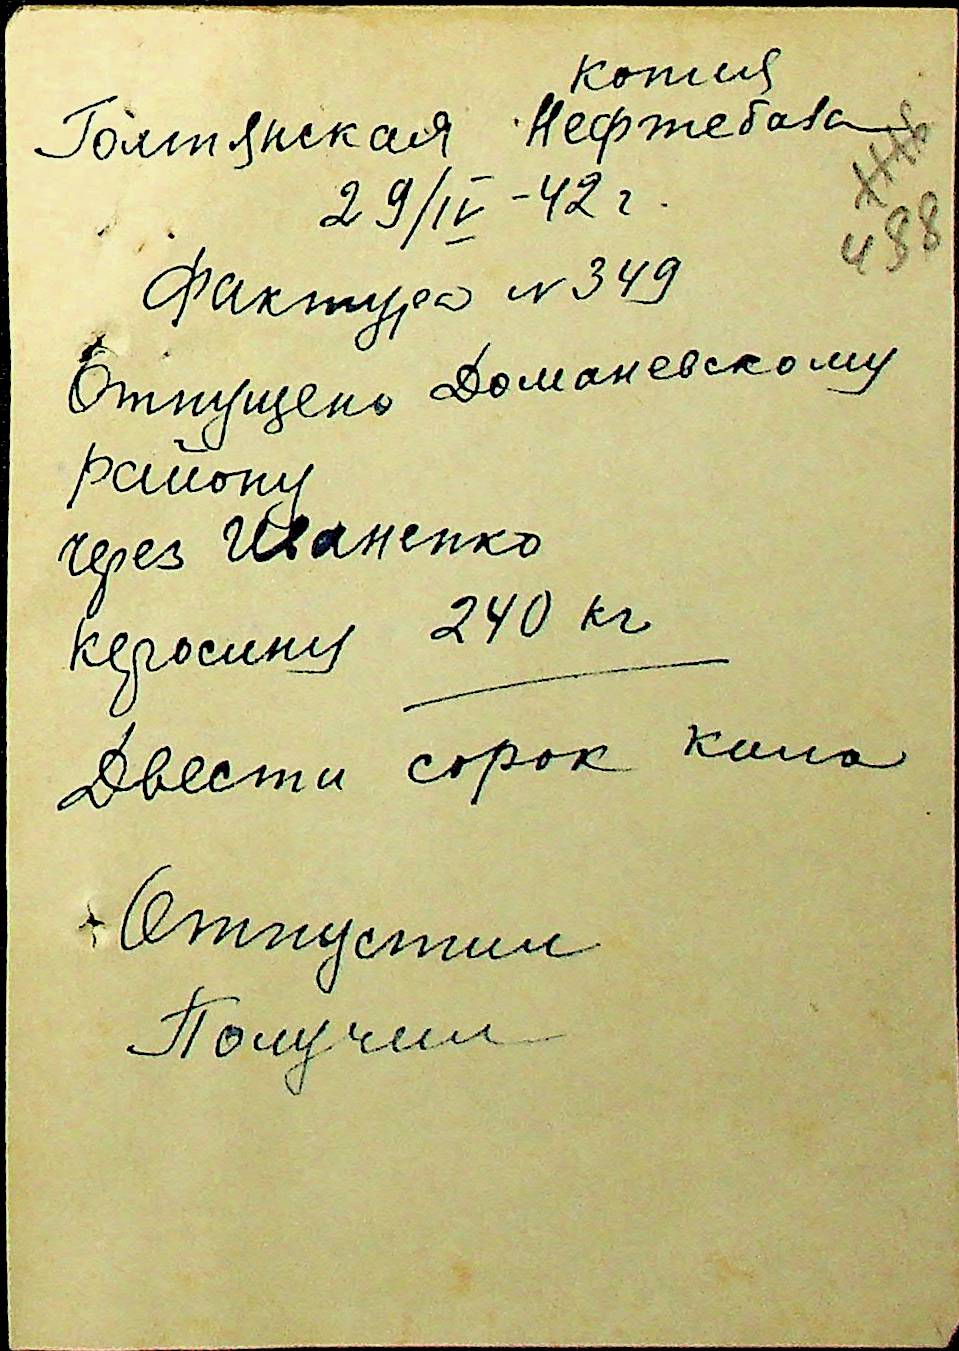 копия
Голтянская Нефтебаза
29/IV-42 г.
Фактура N 349
488
Отпущено Доманевскому
району
через Иваненко
керосину 240 кг
Двести сорок кило
Отпустил
Получил